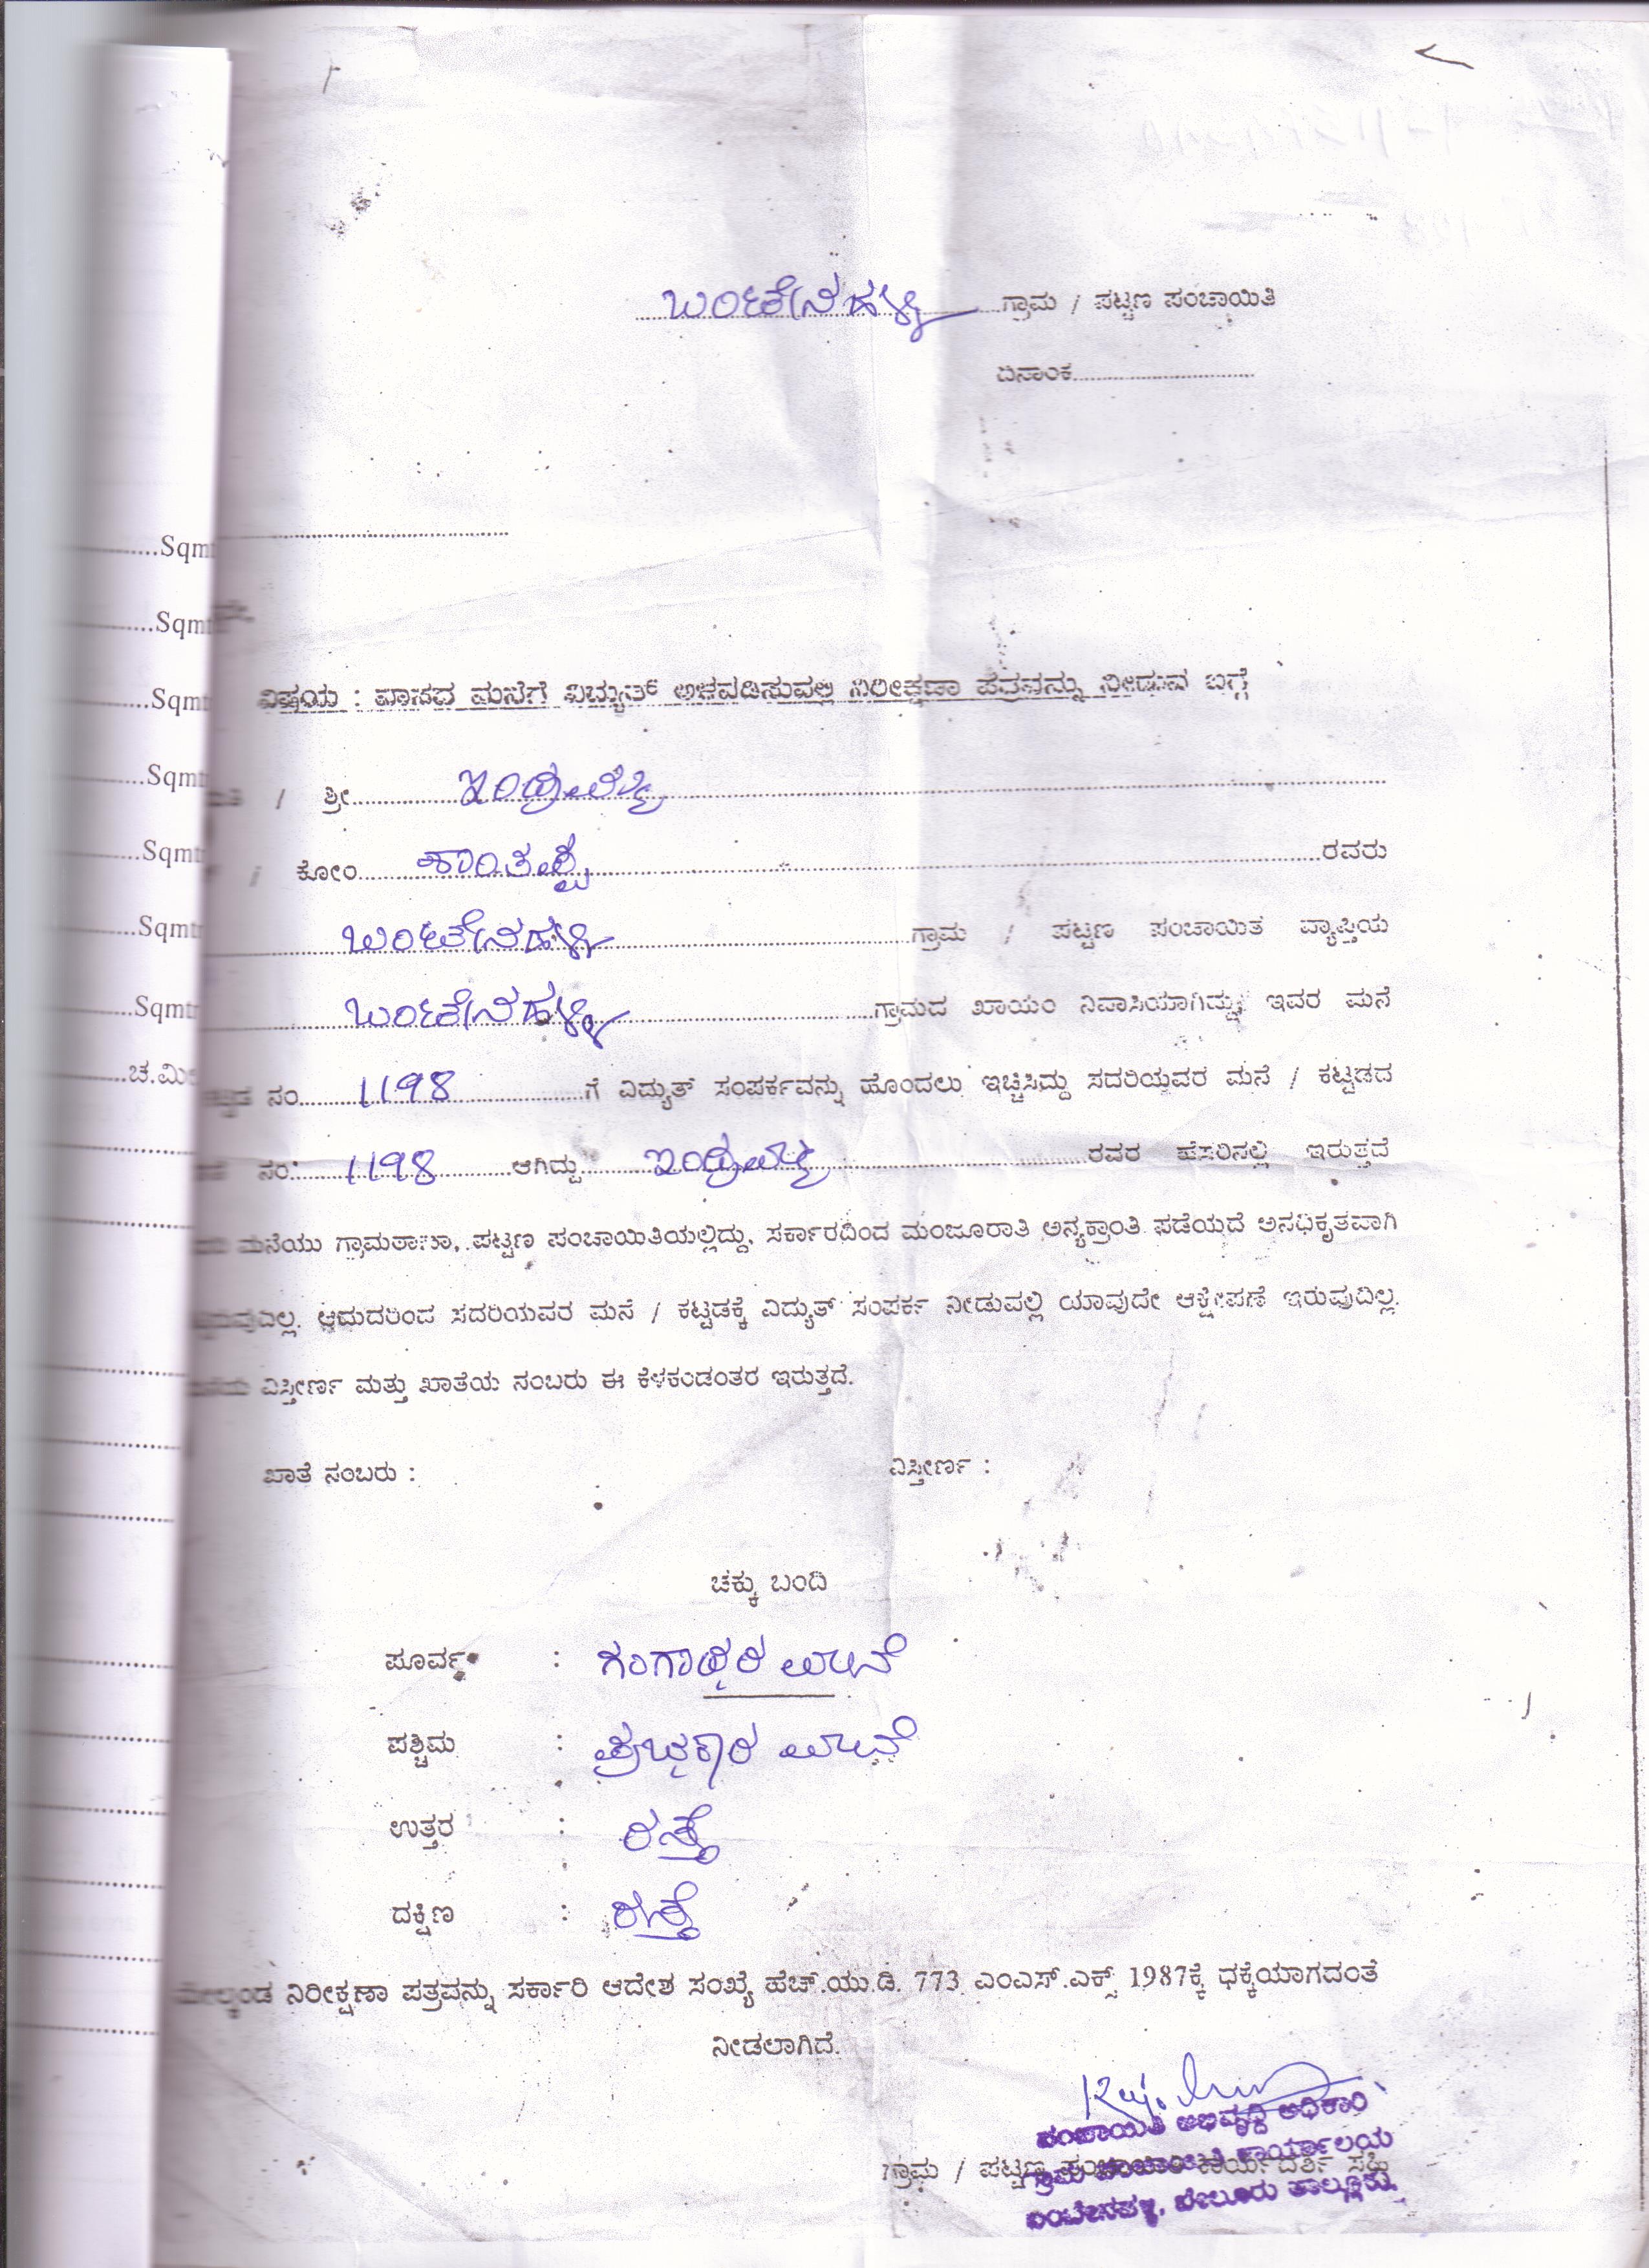 ಬಂಟೇನಹಳ್ಳಿ ಗ್ರಾಮ / ಪಟ್ಟಣ ಪಂಚಾಯಿತಿ
ದಿನಾಂಕ
Sqm
Sqm
Sqm
ವಿಷಯ : ವಾಸದ ಮನೆಗೆ ವಿದ್ಯುತ್ ಅಳವಡಿಸುವಲ್ಲಿ ನಿರೀಕ್ಷಣಾ ಪತ್ರವನ್ನು ನೀಡುವ ಬಗ್ಗೆ
Sqmt
/ ಶ್ರೀ
Sqmt
/ ಕೋಂ ಶಾಂತಪ್ಪ ರವರು
Sqmt
ಬಂಟೇನಹಳ್ಳಿ ಗ್ರಾಮ / ಪಟ್ಟಣ ಪಂಚಾಯಿತ ವ್ಯಾಪ್ತಿಯ
Sqmtr
ಬಂಟೇನಹಳ್ಳಿ ಗ್ರಾಮದ ಖಾಯಂ ನಿವಾಸಿಯಾಗಿದ್ದು, ಇವರ ಮನೆ
ಚ.ಮಿ
ನಂ 1198 ಗೆ ವಿದ್ಯುತ್ ಸಂಪರ್ಕವನ್ನು ಹೊಂದಲು ಇಚ್ಚಿಸಿದ್ದು ಸದರಿಯವರ ಮನೆ / ಕಟ್ಟಡದ
ನಂ. 1198 ಆಗಿದ್ದು ರವರ ಹೆಸರಿನಲ್ಲಿ ಇರುತ್ತದೆ
ಮನೆಯು ಗ್ರಾಮಠಾಣಾ, ಪಟ್ಟಣ ಪಂಚಾಯಿತಿಯಲ್ಲಿದ್ದು, ಸರ್ಕಾರದಿಂದ ಮಂಜೂರಾತಿ ಅನ್ಯಕ್ರಾಂತಿ ಪಡೆಯದೆ ಅನಧಿಕೃತವಾಗಿ
ಆದುದರಿಂದ ಸದರಿಯವರ ಮನೆ / ಕಟ್ಟಡಕ್ಕೆ ವಿದ್ಯುತ್ ಸಂಪರ್ಕ ನೀಡುವಲ್ಲಿ ಯಾವುದೇ ಆಕ್ಷೇಪಣೆ ಇರುವುದಿಲ್ಲ.
ವಿಸ್ತೀರ್ಣ ಮತ್ತು ಖಾತೆಯ ನಂಬರು ಈ ಕೆಳಕಂಡಂತರ ಇರುತ್ತದೆ.
ಖಾತೆ ನಂಬರು : ವಿಸ್ತೀರ್ಣ :
ಚಕ್ಕು ಬಂದಿ
ಪೂರ್ವ : ಗಂಗಾಧರ ಮನೆ
ಪಶ್ಚಿಮ : ಪ್ರಭಾಕರ ಮನೆ
ಉತ್ತರ : ರಸ್ತೆ
ದಕ್ಷಿಣ : ರಸ್ತೆ
ಮೇಲ್ಕಂಡ ನಿರೀಕ್ಷಣಾ ಪತ್ರವನ್ನು ಸರ್ಕಾರಿ ಆದೇಶ ಸಂಖ್ಯೆ ಹೆಚ್.ಯು.ಡಿ. 773 ಎಂಎಸ್.ಎಕ್ಸ್ 1987ಕ್ಕೆ ಧಕ್ಕೆಯಾಗದಂತೆ
ನೀಡಲಾಗಿದೆ.
ಪಂಚಾಯಿತಿ ಅಭಿವೃದ್ಧಿ ಅಧಿಕಾರಿ
ಗ್ರಾಮ ಪಂಚಾಯಿತಿ ಕಾರ್ಯಾಲಯ
ಗ್ರಾಮ / ಪಟ್ಟಣ ಪಂಚಾಯಿತಿ ಕಾರ್ಯದರ್ಶಿ ಸಹಿ
ಬಂಟೇನಹಳ್ಳಿ, ಬೇಲೂರು ತಾಲ್ಲೂಕು.